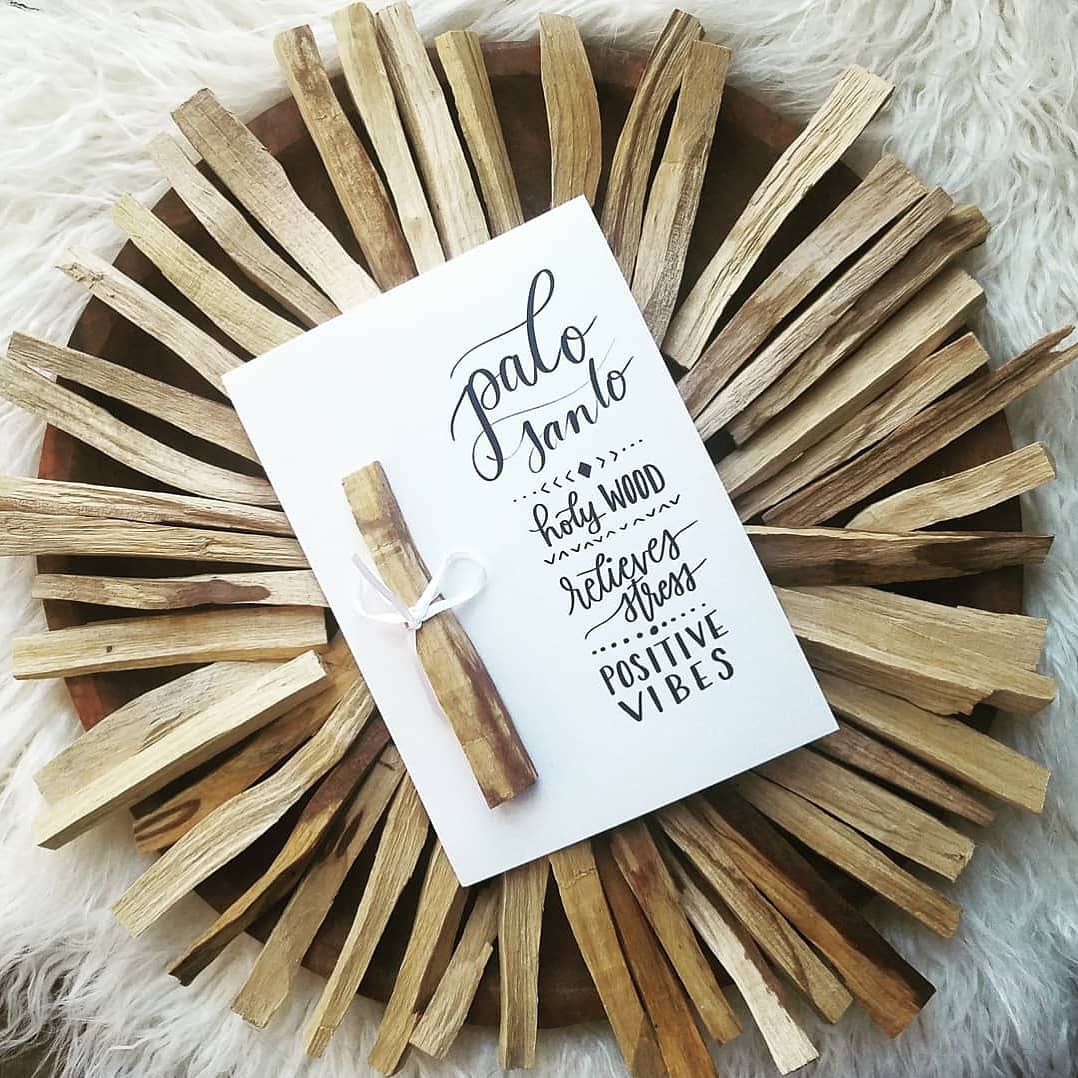 palo
santo
holy WOOD
relieves
stress
POSITIVE
VIBES